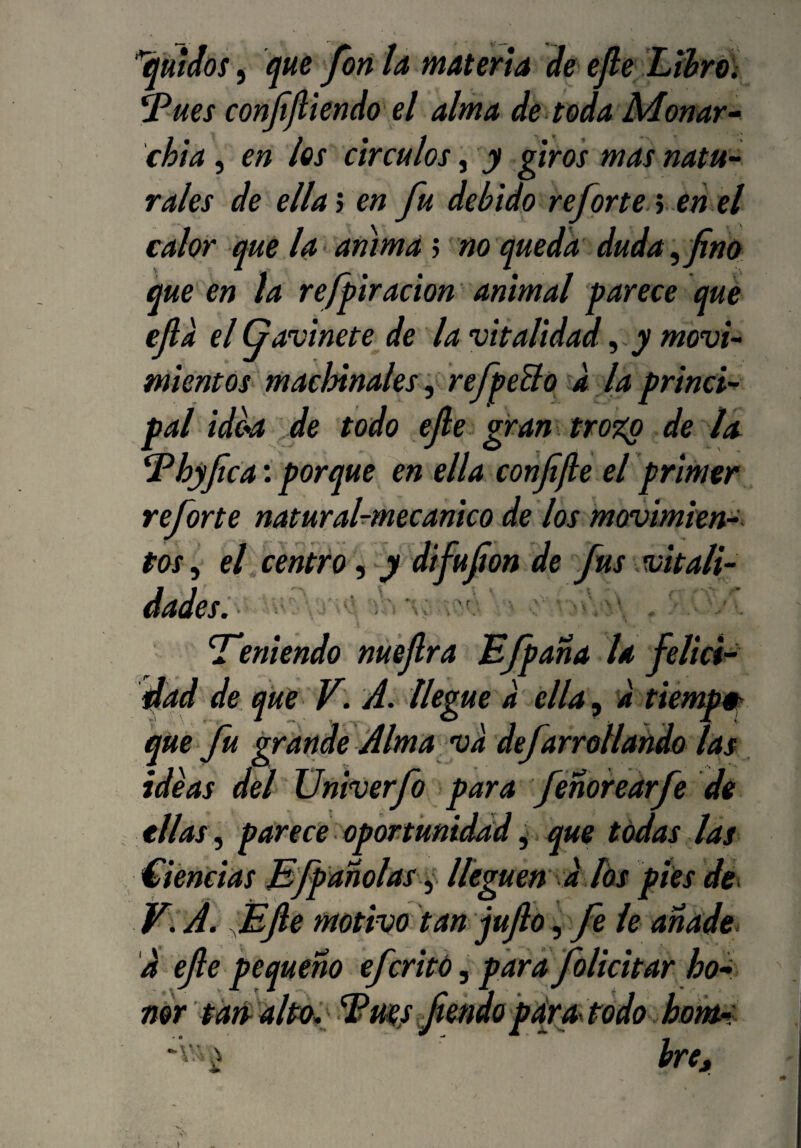 quidos, que ſon la materia de eſte Libro.
Pues conſiſtiendo el alma de toda Monar-
chia, en los circulos, y giros mas natu-
rales de ella; en ſu debido reſorte; en el
calor que la anima; no queda duda, ſino
que en la reſpiracion animal parece que
eſtà el Gavinete de la vitalidad, y movi-
mientos machinales, reſpecto à la princi-
pal idèa de todo eſte gran trozo de la
Phyſica: porque en ella conſiſte el primer
reſorte natural-mecanico de los movimien-
tos, el centro, y difuſion de ſus vitali-
dades.
Teniendo nueſtra Eſpaña la felici-
dad de que V. A. llegue à ella, à tiempo
que ſu grande Alma và deſarrollando las
idèas del Univerſo para ſeñorearſe de
ellas, parece oportunidad, que todas las
Ciencias Eſpañolas, lleguen à los pies de
V. A. Eſte motivo tan juſto, ſe le añade
à eſte pequeño eſcrito, para ſolicitar ho-
nor tan alto. Pues ſiendo para todo hom-
bre,